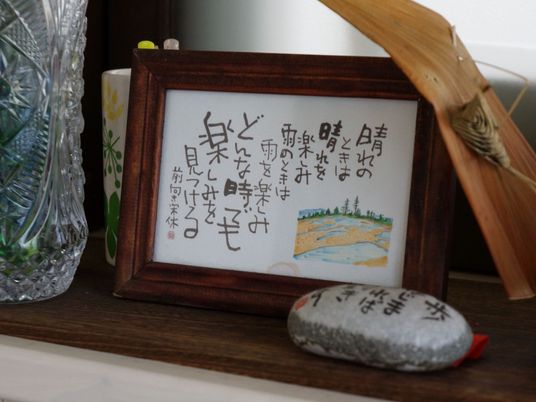 晴れの
ときは
晴れを
楽しみ
雨のときは
雨を楽しみ
どんな時でも
楽しみを
見つける
前向き宗休